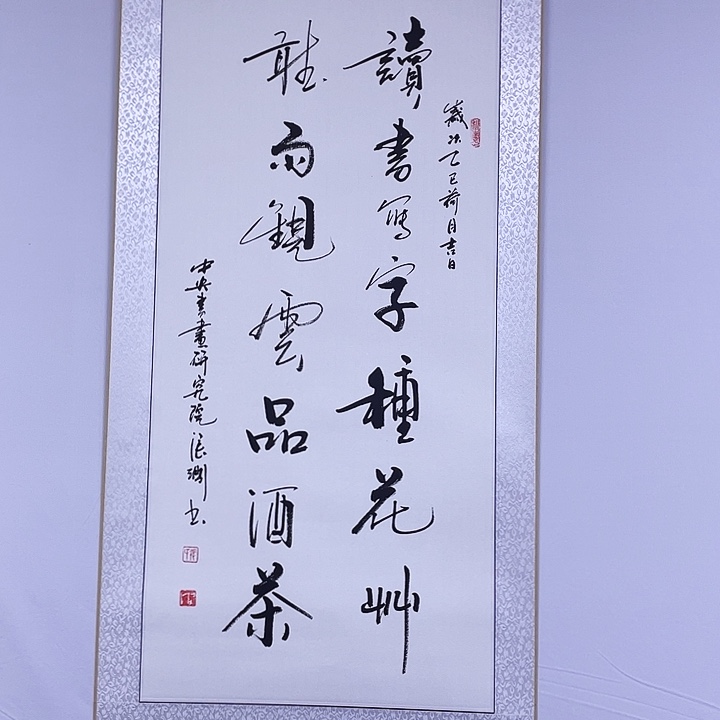 歲次乙巳荷月吉日
讀書写字種花艸
聴雨観雲品酒茶
中央書畫研究院張渊书